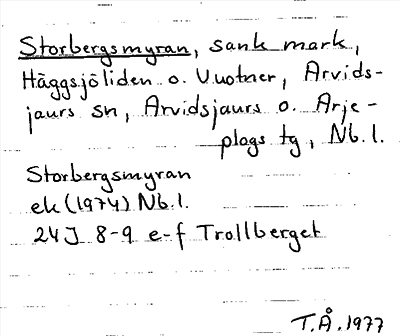 Storbergsmyran, sank mark,
Häggsjöliden o. Vuotner, Arvids-
jaurs sn, Arvidsjaurs o. Arje-
plogs tg, Nb. l.
Storbergsmyran
ek (1974) Nb. l.
24J 8-9 e-f Trollberget
T.Å. 1977